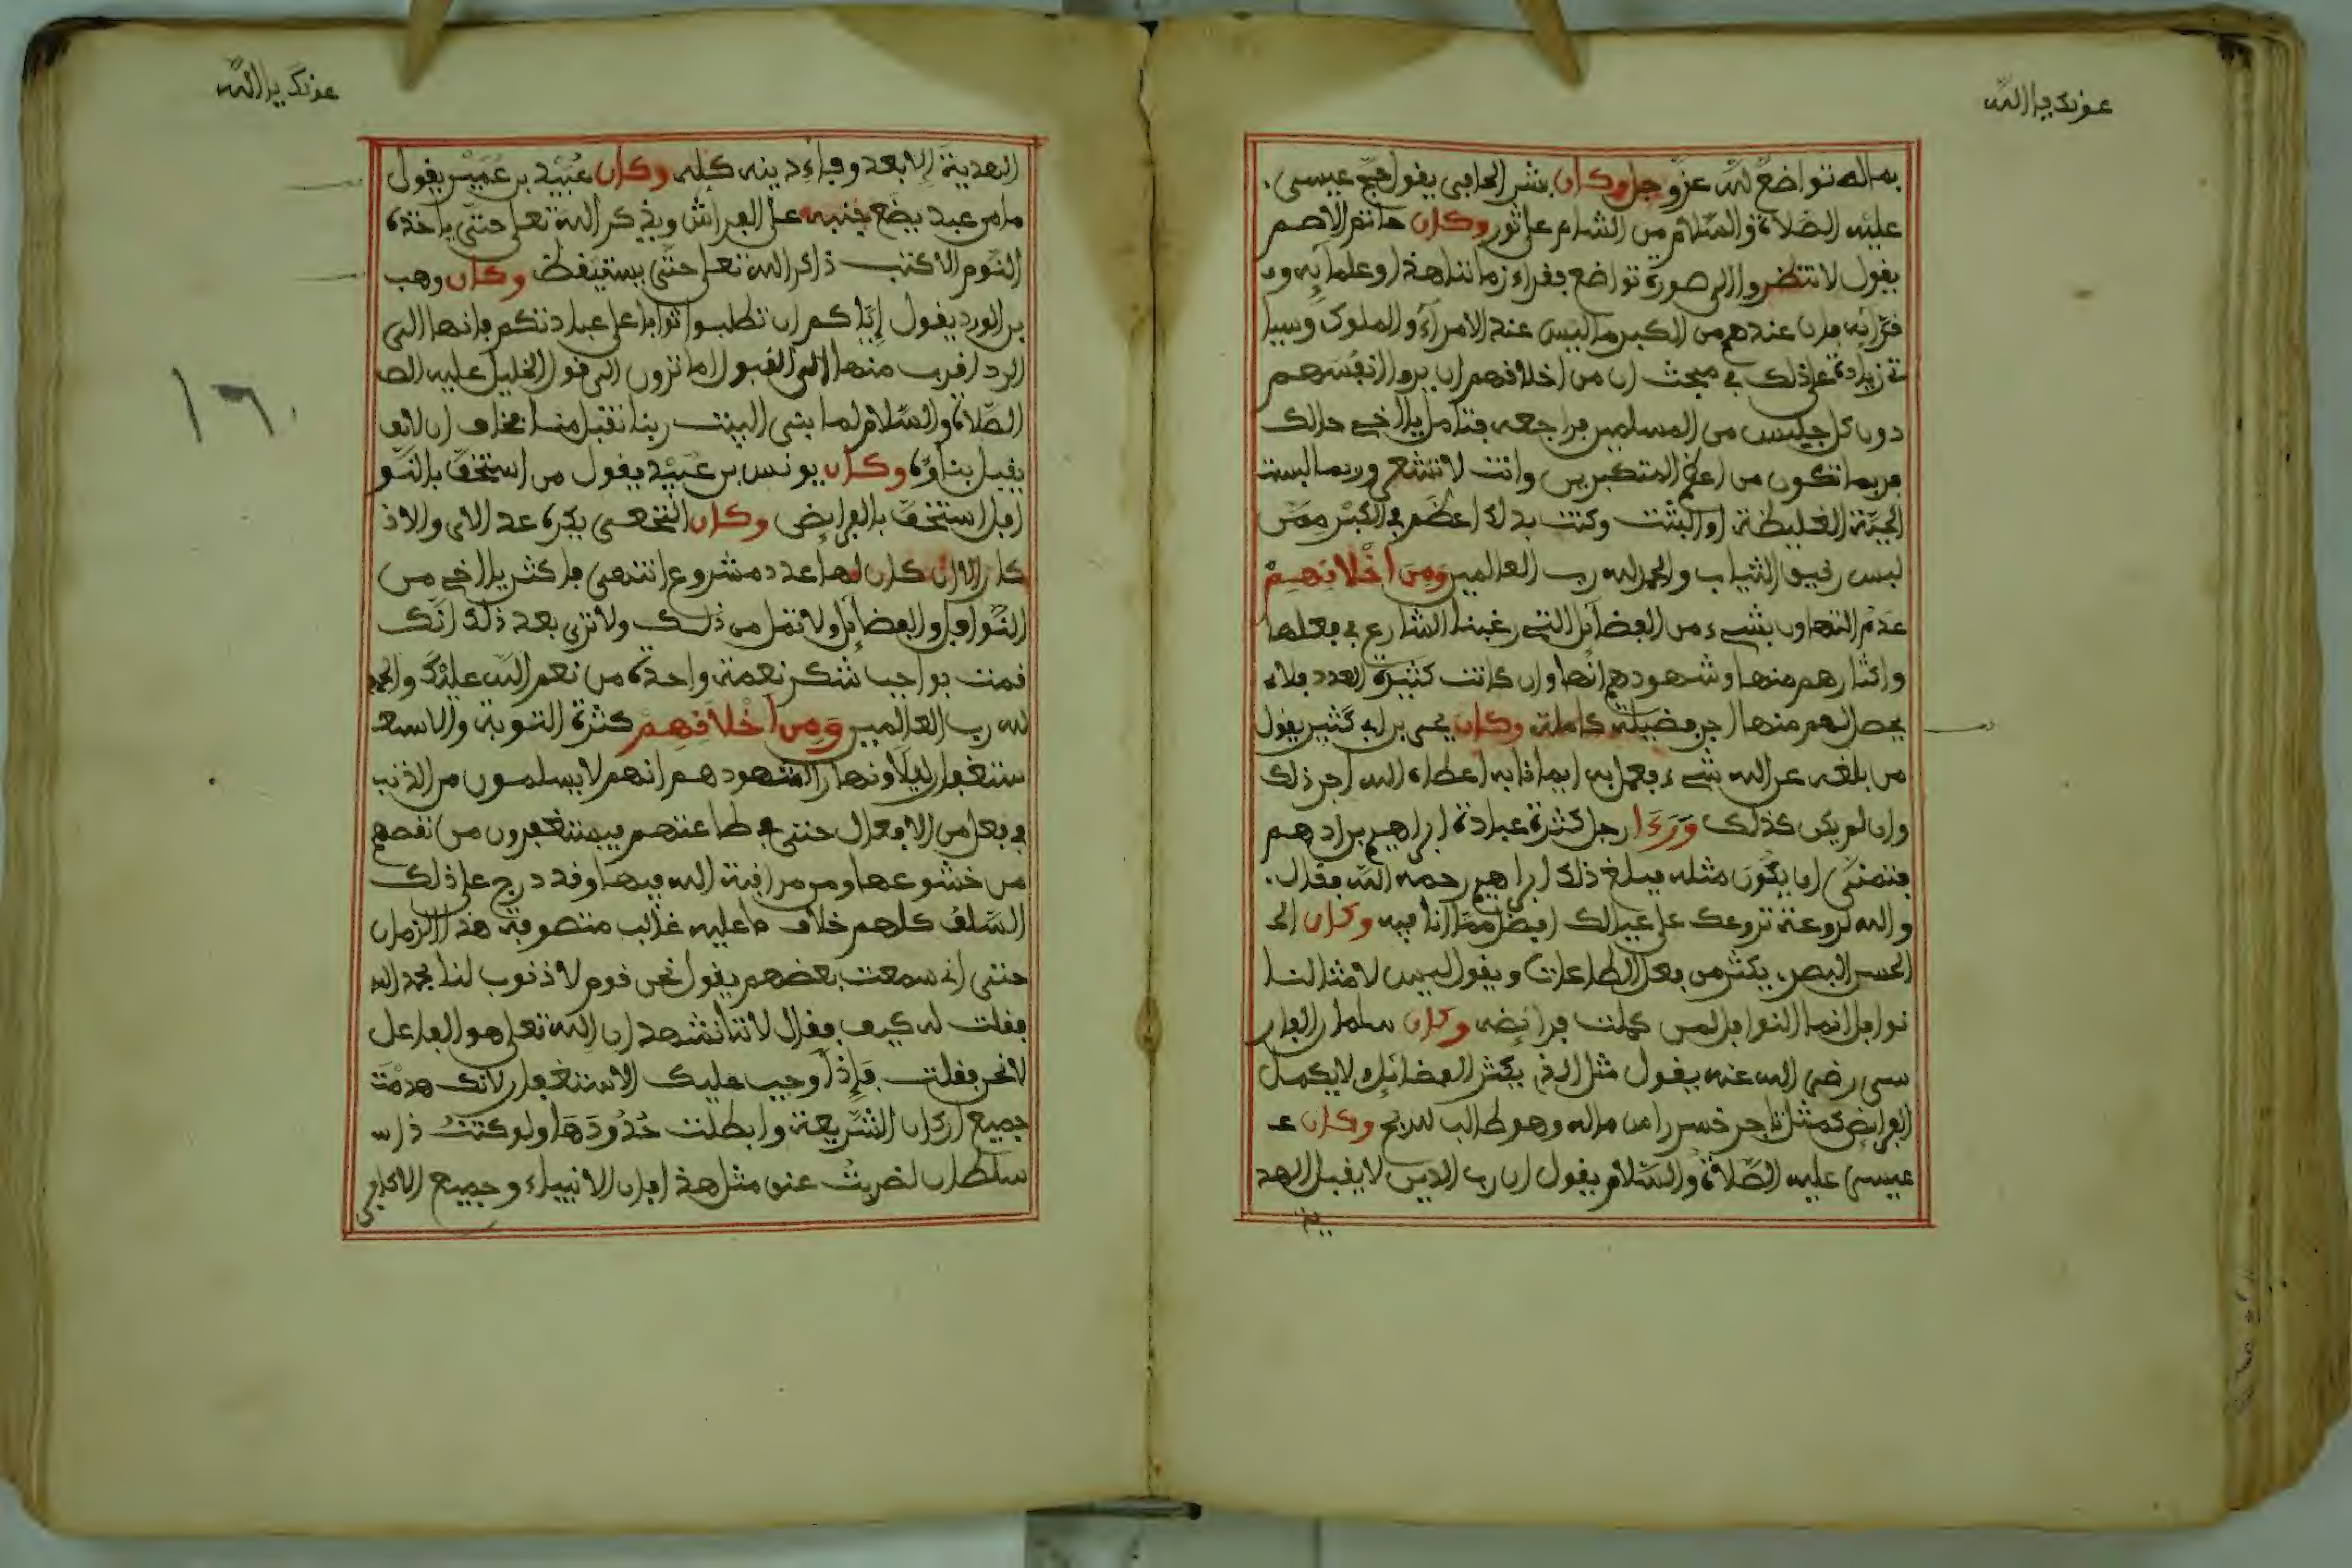 عونك يا الله
به اله تواضع لله عز وجل وكان بشر الحافي يقول حج عيسى
عليه الصلاة والسلام من الشام على ثور وكان حاتم الأصم
يقول لا تنظروا إلى صورة تواضع فقراء زماننا هذا وعلمايه و
قرايه فإن عندهم من الكبر ما ليس عند الأمراء والملوك وسيا
تي زيادة على ذلك في مبحث إن من أخلاقهم أن يروا نفسهم
دون كل جليس من المسلمين فراجعه فتأمل يا أخي حالك
فربما تكون من أعظم المتكبرين وأنت لا تشعر وربما لبست
الجبة الغليظة أو البشت وكنت بذلك أعظم في الكبر ممن
لبس رقيق الثياب والحمد لله رب العالمين ومن أخلاقهم
عدم التهاون بشيء من الفضائل التي رغبنا الشارع في فعلها
وإكثارهم منها وشهودهم أنها وإن كانت كثيرة العدد فلا
يحصل لهم منها أجر فضيلة كاملة وكان يحيى بن أبي كثير يقول
من بلغه عن الله شيء فعمل به إيمانا به أعطاه الله أجر ذلك
وإن لم يكن كذلك ورءا رجل كثرة عبادة إبراهيم بن أدهم
فتمنى أن يكون مثله فبلغ ذلك إبراهيم رحمه الله فقال
والله لروعة تروعك على عيالك أفضل مما أنا فيه وكان الح
الحسن البصري يكثر من فعل الطاعات ويقول ليس لأمثالنا
نوافل إنما النوافل لمن كملت فرائضه وكان سلمان الفار
سي رضي الله عنه يقول مثل الذي يكثر الفضائل ولا يكمل
الفرائض كمثل تاجر خسر رأس ماله وهو طالب للربح وكان ع
عيسى عليه الصلاة والسلام يقول إن رب الدين لا يقبل الهد
ية
عونك يا الله
الهدية إلا بعد وفاء دينه كله وكان عبيد بن عمير يقول
ما من عبد يضع جنبه على الفراش ويذكر الله تعلى حتى يأخذه
النوم إلا كتب ذاكر الله تعلى حتى يستيقظ وكان وهب
بن الورد يقول إياكم أن تطلبوا ثوابا على عبادتكم فإنها إلى
الرد أقرب منها إلى القبول أما ترون إلى قول الخليل عليه الص
الصلاة والسلام لما بنى البيت ربنا تقبل منا فخاف أن لا يق
يقبل بناؤه وكان يونس بن عبيد يقول من استخف بالنو
افل استخف بالفرائض وكان النخعي يكره عد الآي والأذ
كار إلا إن كان لها عدد مشروع انتهى فأكثر يا أخي من
النوافل والفضائل ولا تمل من ذلك ولا ترى بعد ذلك أنك
قمت بواجب شكر نعمة واحدة من نعم الله عليك والحمد
لله رب العالمين ومن أخلاقهم كثرة التوبة والاستغ
ستغفار ليلا ونهارا لشهودهم أنهم لا يسلمون من الذنب
في فعل من الأفعال حتى في طاعتهم فيستغفرون من نقصهم
من خشوعها ومن مراقبة الله فيها وقد درج على ذلك
السلف كلهم خلاف ما عليه غالب متصوفة هذا الزمان
حتى إني سمعت بعضهم يقول نحن قوم لا ذنوب لنا بحمد الله
فقلت له كيف فقال لأننا نشهد أن الله تعلى هو الفاعل
لا نحن فقلت فإذا وجب عليك الاستغفار لأنك هدمت
جميع أركان الشريعة وأبطلت حدودها ولو كنت ذا س
سلطان لضربت عنق مثل هذا فإن الأنبياء وجميع الأكابر
١٦٠